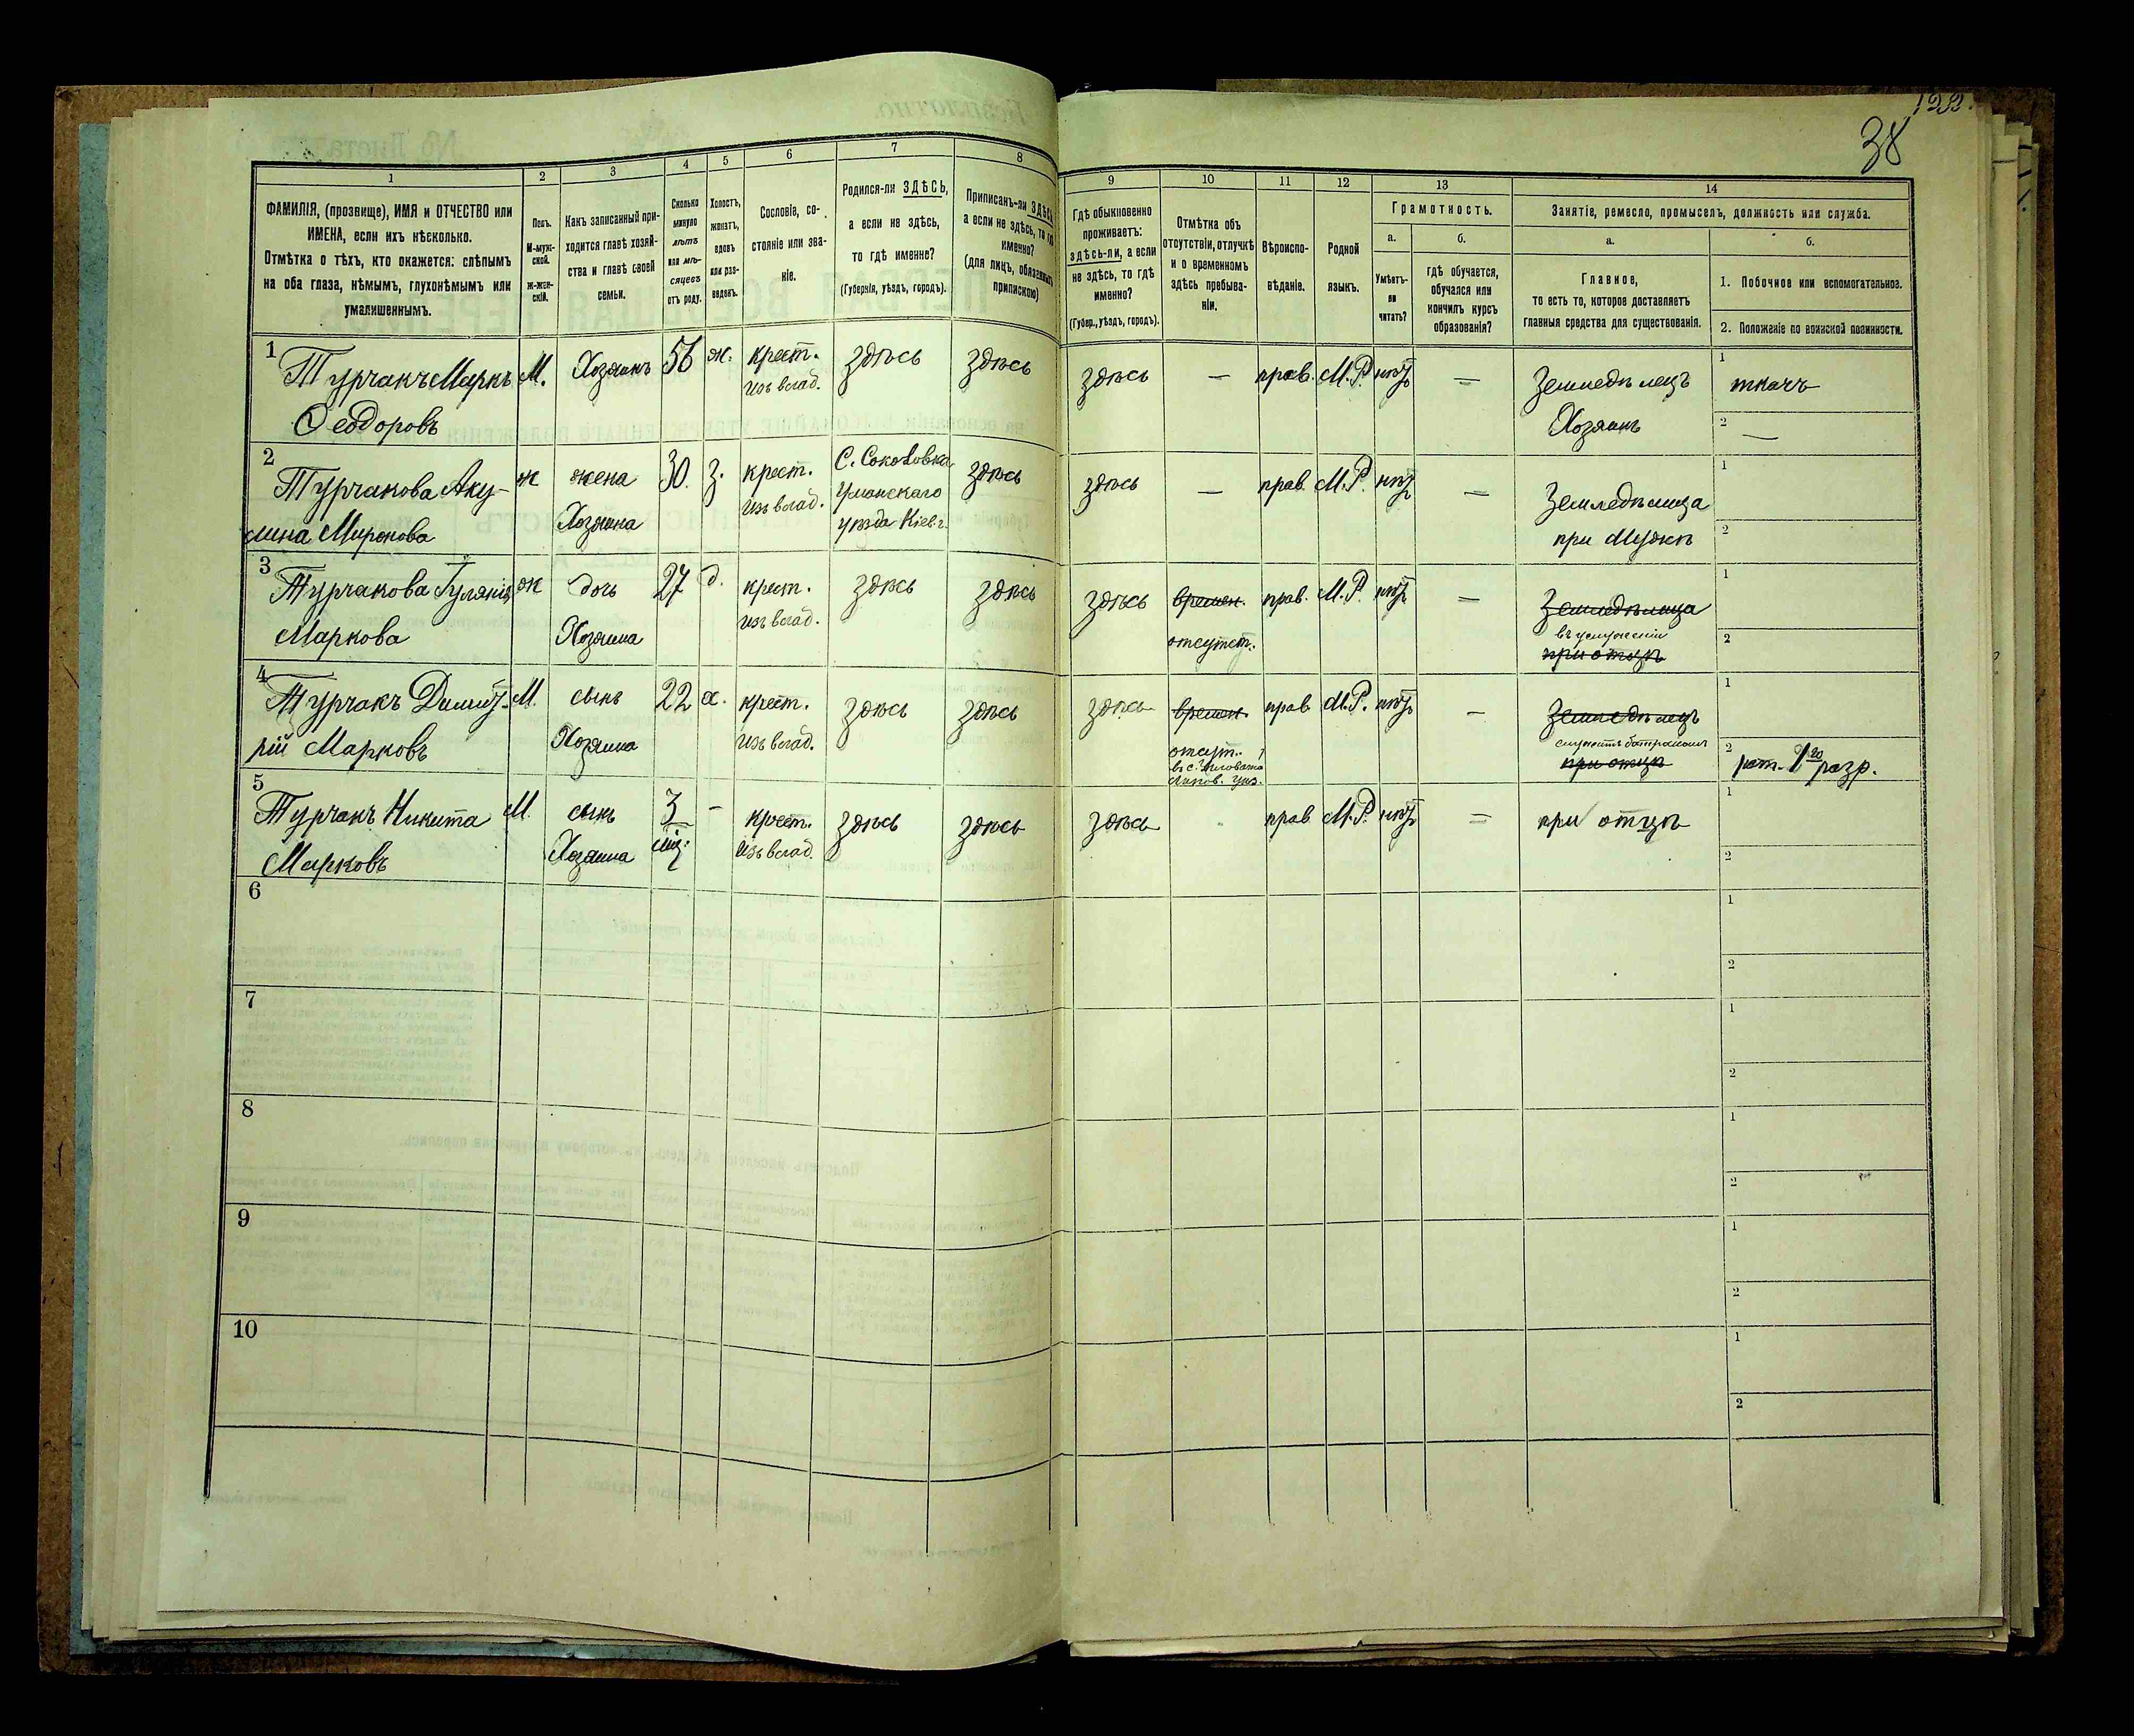 122.
38
1
2
3
4
5
6
7
8
9
10
11
12
13
14
ФАМИЛІЯ, (прозвище), ИМЯ и ОТЧЕСТВО или
ИМЕНА, если ихъ нѣсколько.
Отмѣтка о тѣхъ, кто окажется: слѣпымъ
на оба глаза, нѣмымъ, глухонѣмымъ или
умалишеннымъ.
Полъ.
М-муж-
ской.
Ж-жен-
скій.
Какъ записанный при-
ходится главѣ хозяй-
ства и главѣ своей
семьи.
Сколько
минуло
лѣтъ
или мѣ-
сяцевъ
отъ роду.
Холостъ,
женатъ,
вдовъ
или раз-
веденъ.
Сословіе, со-
стояніе или зва-
ніе.
Родился-ли ЗДѢСЬ,
а если не здѣсь,
то гдѣ именно?
(Губернія, уѣздъ, городъ).
Приписанъ-ли ЗДѢСЬ,
а если не здѣсь, то гдѣ
именно?
(для лицъ, обязанныхъ
припискою)
Гдѣ обыкновенно
проживаетъ:
здѣсь-ли, а если
не здѣсь, то гдѣ
именно?
(Губер., уѣздъ, городъ).
Отмѣтка объ
отсутствіи, отлучкѣ
и о временномъ
здѣсь пребыва-
ніи.
Вѣроиспо-
вѣданіе.
Родной
языкъ.
Грамотность.
а.
Умѣетъ-
ли
читать?
б.
гдѣ обучается,
обучался или
кончилъ курсъ
образованія?
Занятіе, ремесло, промыселъ, должность или служба.
а.
Главное,
то есть то, которое доставляетъ
главныя средства для существованія.
б.
1. Побочное или вспомогательное.
2. Положеніе по воинской повинности.
1
Турчакъ Маркъ М. Хозяинъ 56 ж. крест. здѣсь здѣсь здѣсь — прав. М.Р. нѣтъ — Земледѣлецъ 1 ткачъ
Ѳеодоровъ изъ влад. Хозяинъ 2 —
2
Турчакова Аку- ж жена 30. з. крест. С. Соколовка здѣсь здѣсь — прав. М.Р. нѣтъ — Земледѣлица 1
лина Миронова Хозяина изъ влад. Уманскаго уѣзда Кіев. г. при Мужѣ 2
3
Турчакова ж дочь 27 д. крест. здѣсь здѣсь здѣсь времен. прав. М.Р. нѣтъ — Земледѣлица 1
Маркова Хозяина изъ влад. отсутст. въ услуженіи 2
при отцѣ
4
Турчакъ Димит- М. сынъ 22 х. крест. здѣсь здѣсь здѣсь времен. прав. М.Р. нѣтъ — Земледѣлецъ 1
рій Марковъ Хозяина изъ влад. отсут. служитъ батракомъ 2 рат. 1го разр.
въ с. Липов. уѣз. при отцѣ
5
Турчакъ Никита М. сынъ 3 – крест. здѣсь здѣсь здѣсь прав. М.Р. нѣтъ — при отцѣ 1
Марковъ Хозяина мѣс. изъ влад. 2
6
1
2
7
1
2
8
1
2
9
1
2
10
1
2